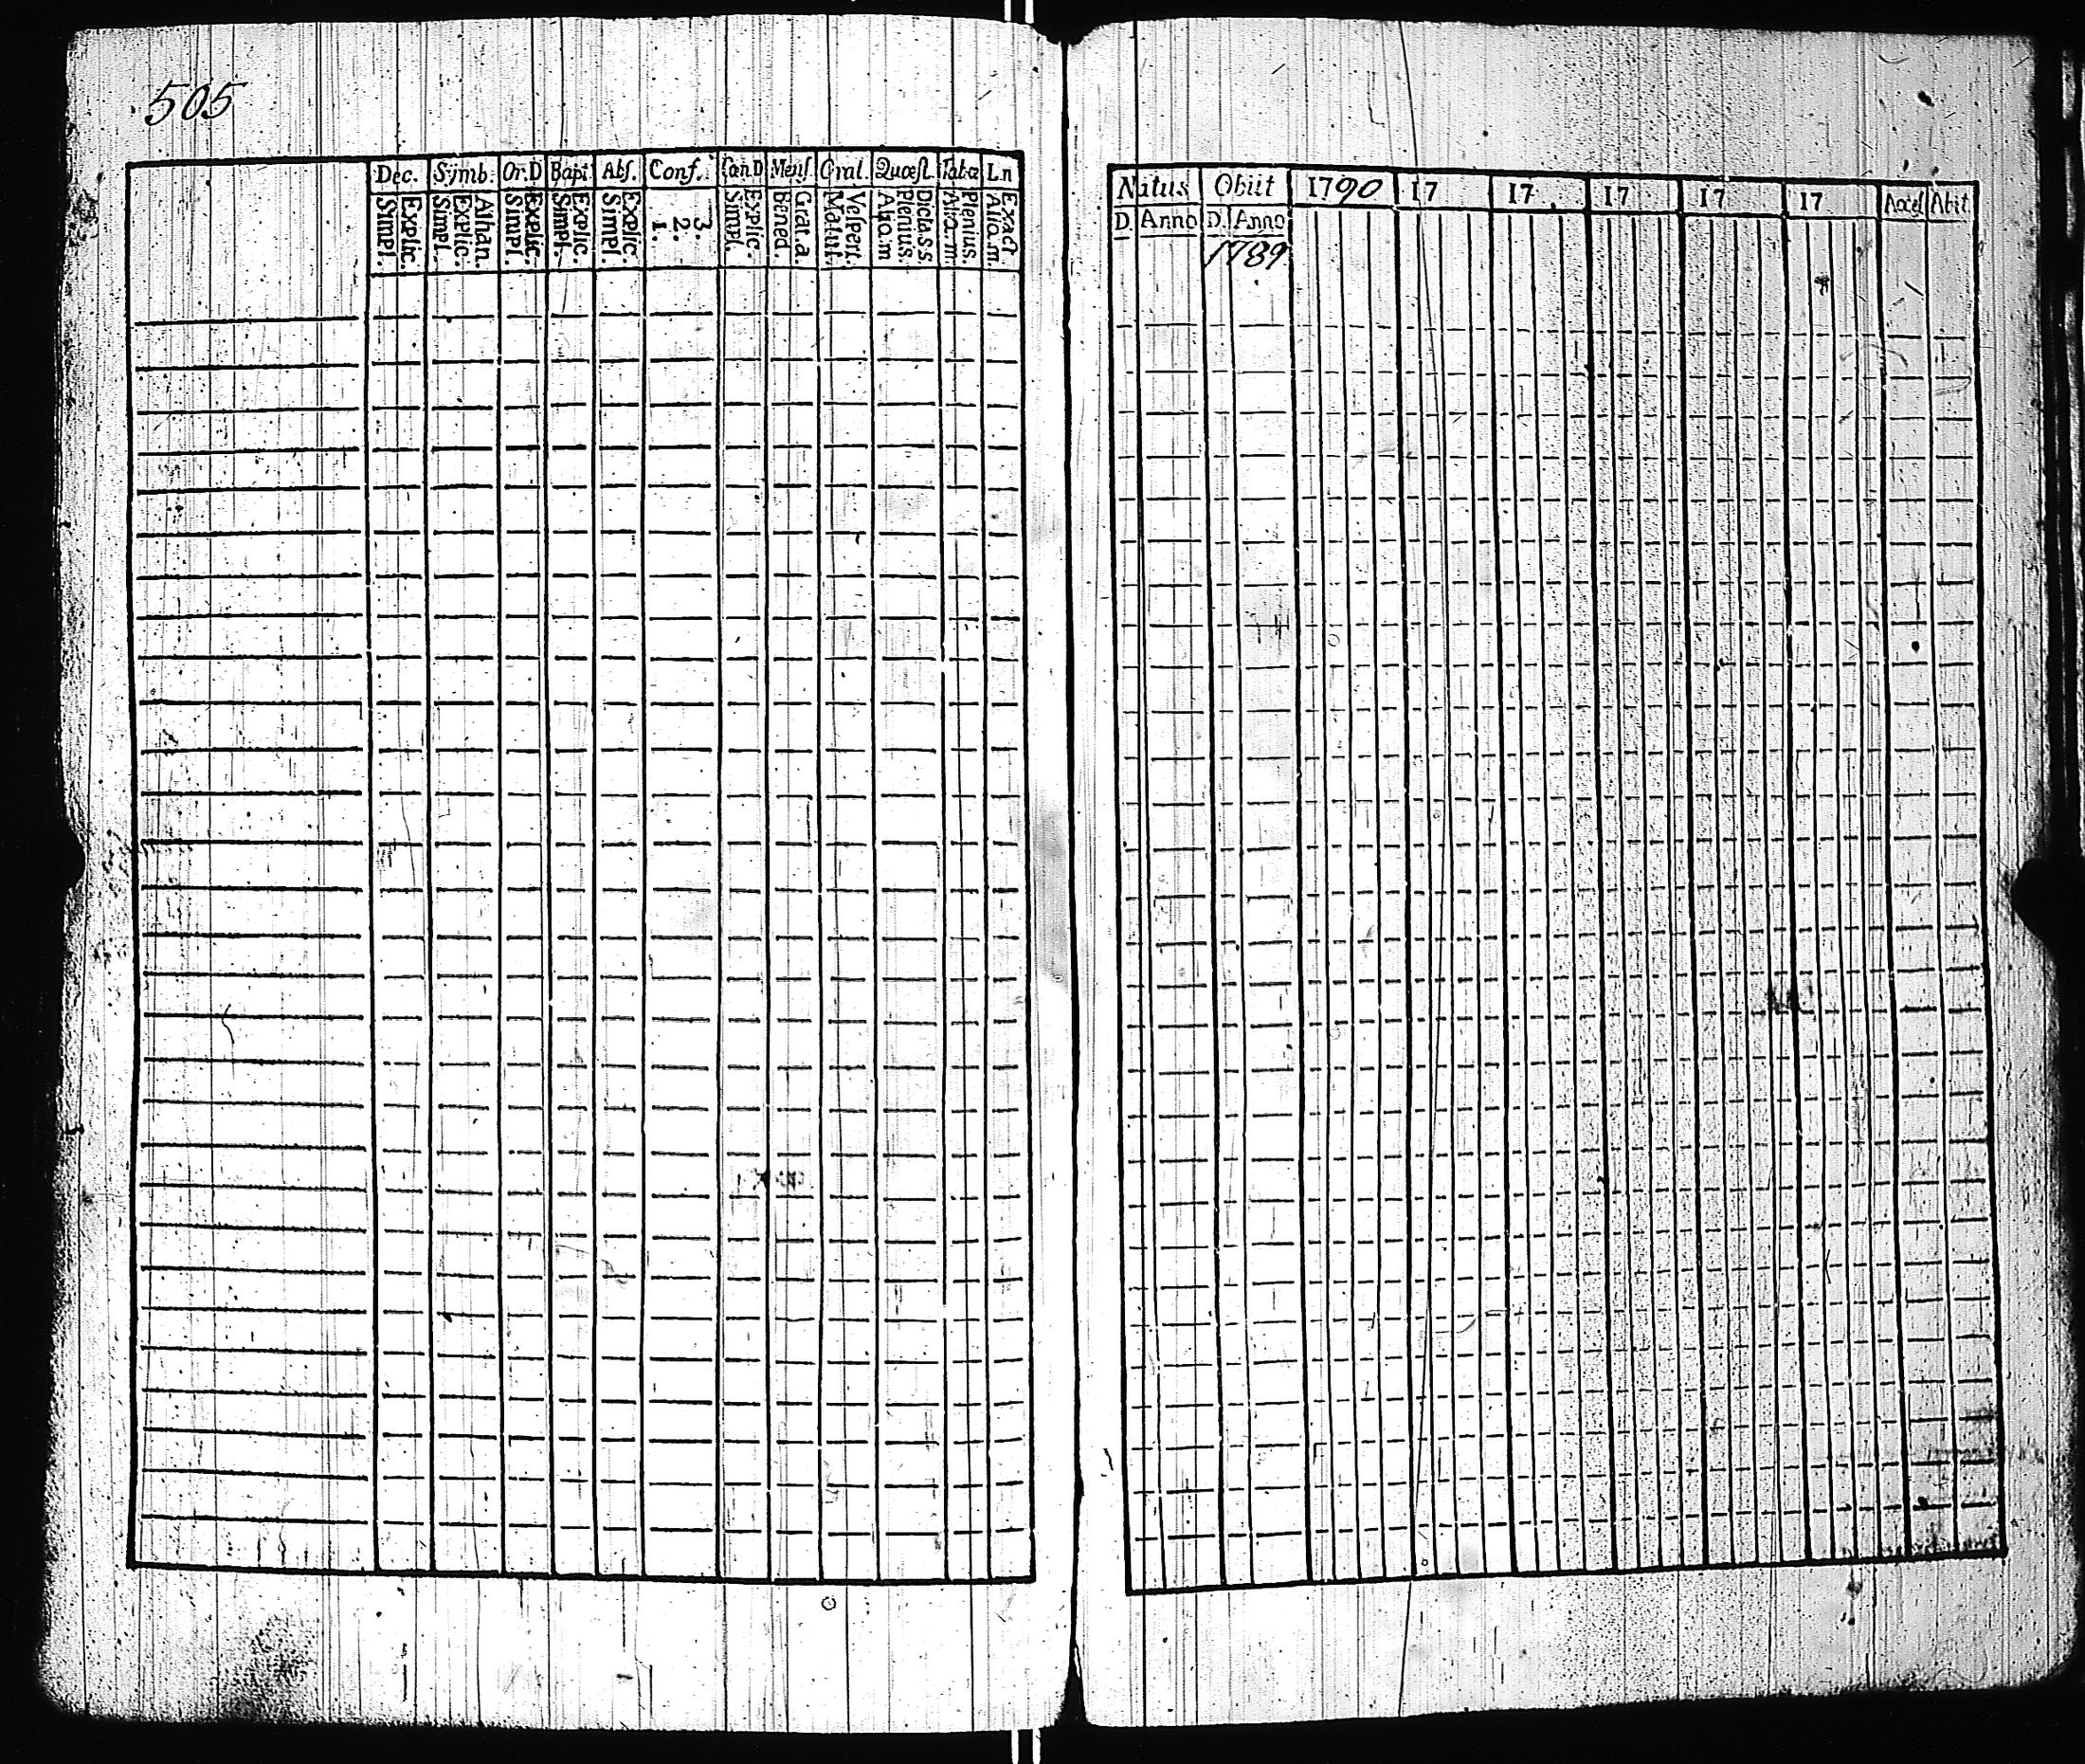 505
Dec. Symb. Or.D Bapt. Abs. Conf. Cœn.D Mens. Orat. Quæst. Taba L.n
Simpl. Explic. Simpl. Explic. Athan. Simpl. Explic. Simpl. Explic. Simpl. Explic. 1. 2. 3. Simpl. Explic. bened. Grat.a Matut. Vespert. Alio.m Plenius. Dicta S.S. Alio.m Plenius. Alio.m. Exact.
Natus Obiit 1790 17 17 17 17 17 Acces Abit
D. Anno D. Anno
1789